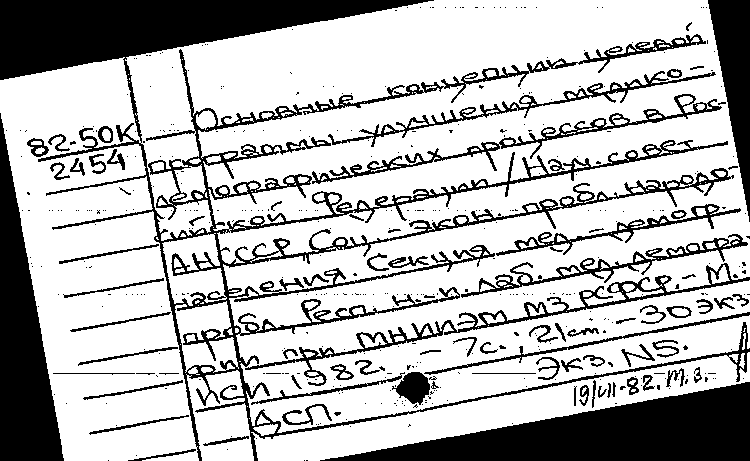 82-50К
2454
Основные концепции целевой
программы улучшения медико-
демографических процессов в Рос-
сийской Федерации / Науч. совет
АН СССР „Соц.-экон. пробл. народо-
населения. Секция мед.-демогр.
пробл., Респ. н.-и. лаб. мед. демогра-
фии при МНИИЭМ МЗ РСФСР.- М.:
1982. - 7с.; 21 см. - 30 экз
Экз. N5.
ДСП.
19/VII-82. М.З.